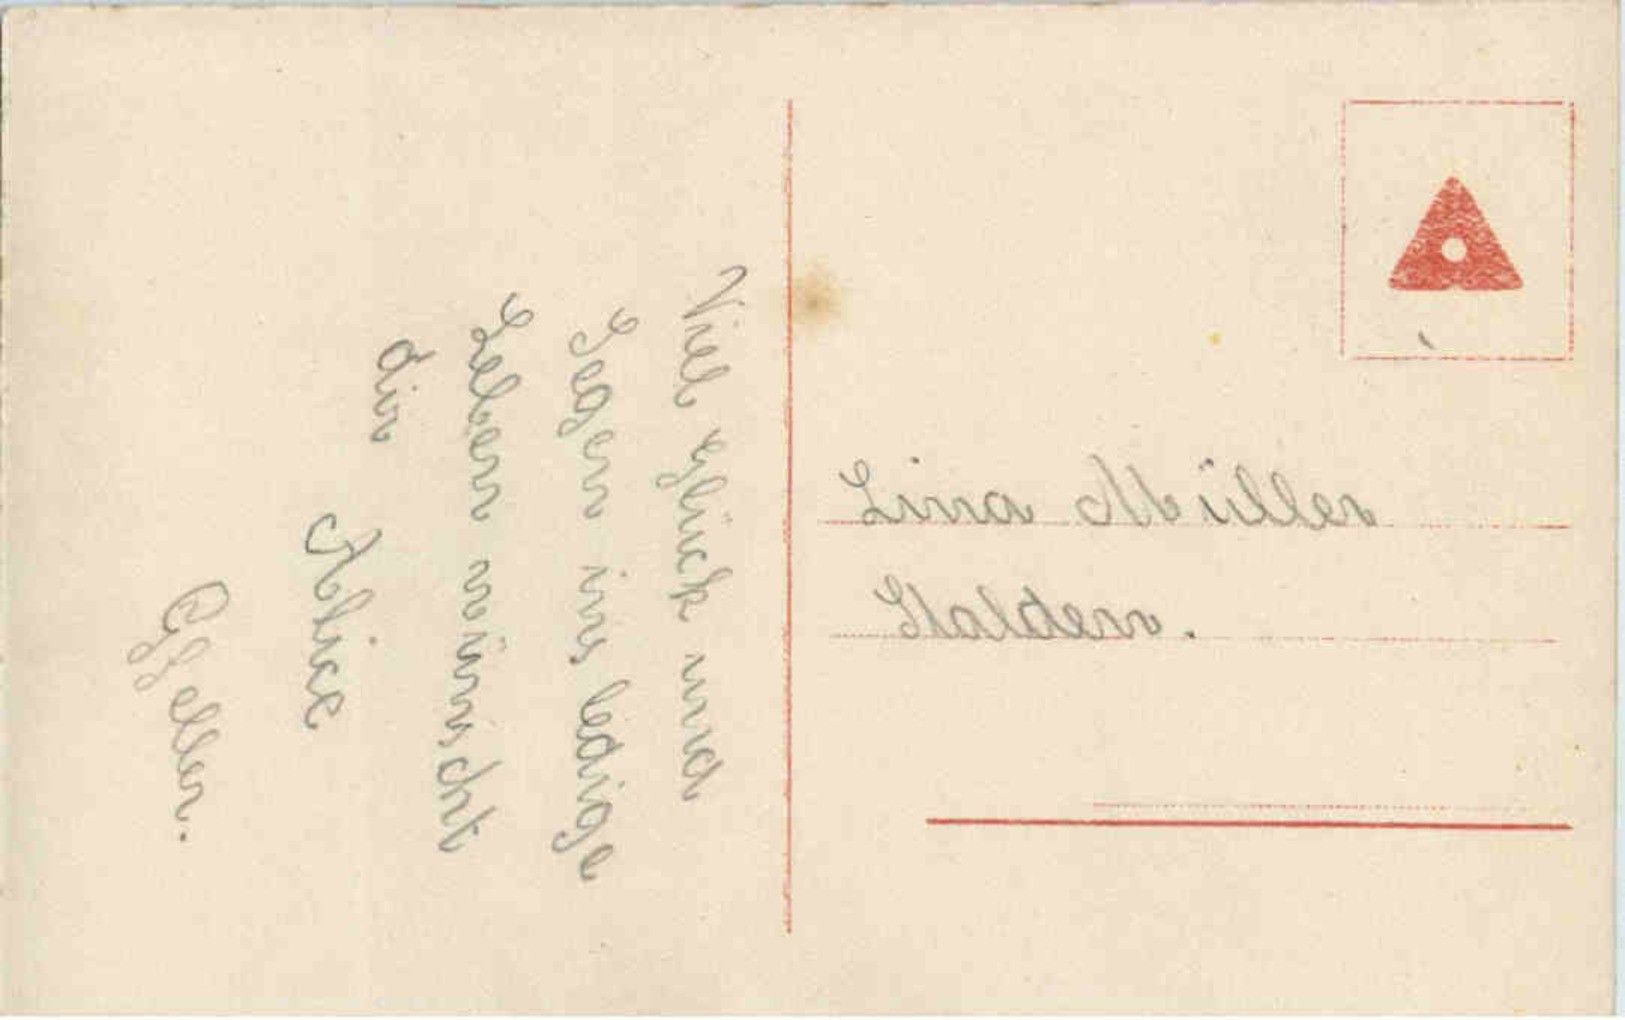 Viel Glück und
Segen ins ledige
Leben wünscht
dir
Alice
Gfeller.
Lina Müller
Stalden.